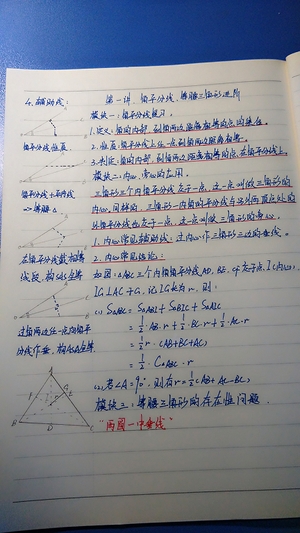 第一讲、角平分线、等腰三角形进阶
模块一:角平分线复习。
1.定义:角的内部,到角两边距离相等的点的集合。
2.性质:角平分线上任一点,到角两边距离相等。
3.判定:角的内部,到角两边距离相等的点,在角平分线上。
模块二:内心、旁心的应用。
三角形三个内角平分线交于一点,这一点叫做三角形的
内心,同样的,三角形一内角平分线与另外两顶点处的
外角平分线也交于一点,这一点叫做三角形的旁心。
1.内心常见辅助线:过内心作三角形三边的垂线。
2.内心常见结论:
如图:△ABC三个内角角平分线AD、BE、CF交于点I(内心),
IG⊥AC于G,记IG长为r,则:
(1) S△ABC = S△ABI + S△BIC + S△AIC
= ½·AB·r + ½·BC·r + ½·AC·r
= ½r·(AB+BC+AC)
= ½·C△ABC·r
(2)若∠A=90°,则有r=½(AB+AC-BC)
模块三:等腰三角形的存在性问题.
"两圆一中垂线"
4.辅助线:
角平分线性质
角平分线+平行线
⇒等腰△
在角平分线截相等
线段,构成全等
过角两边任一点向角平
分线作垂,构成全等
A
F
G
E
I
B
D
C